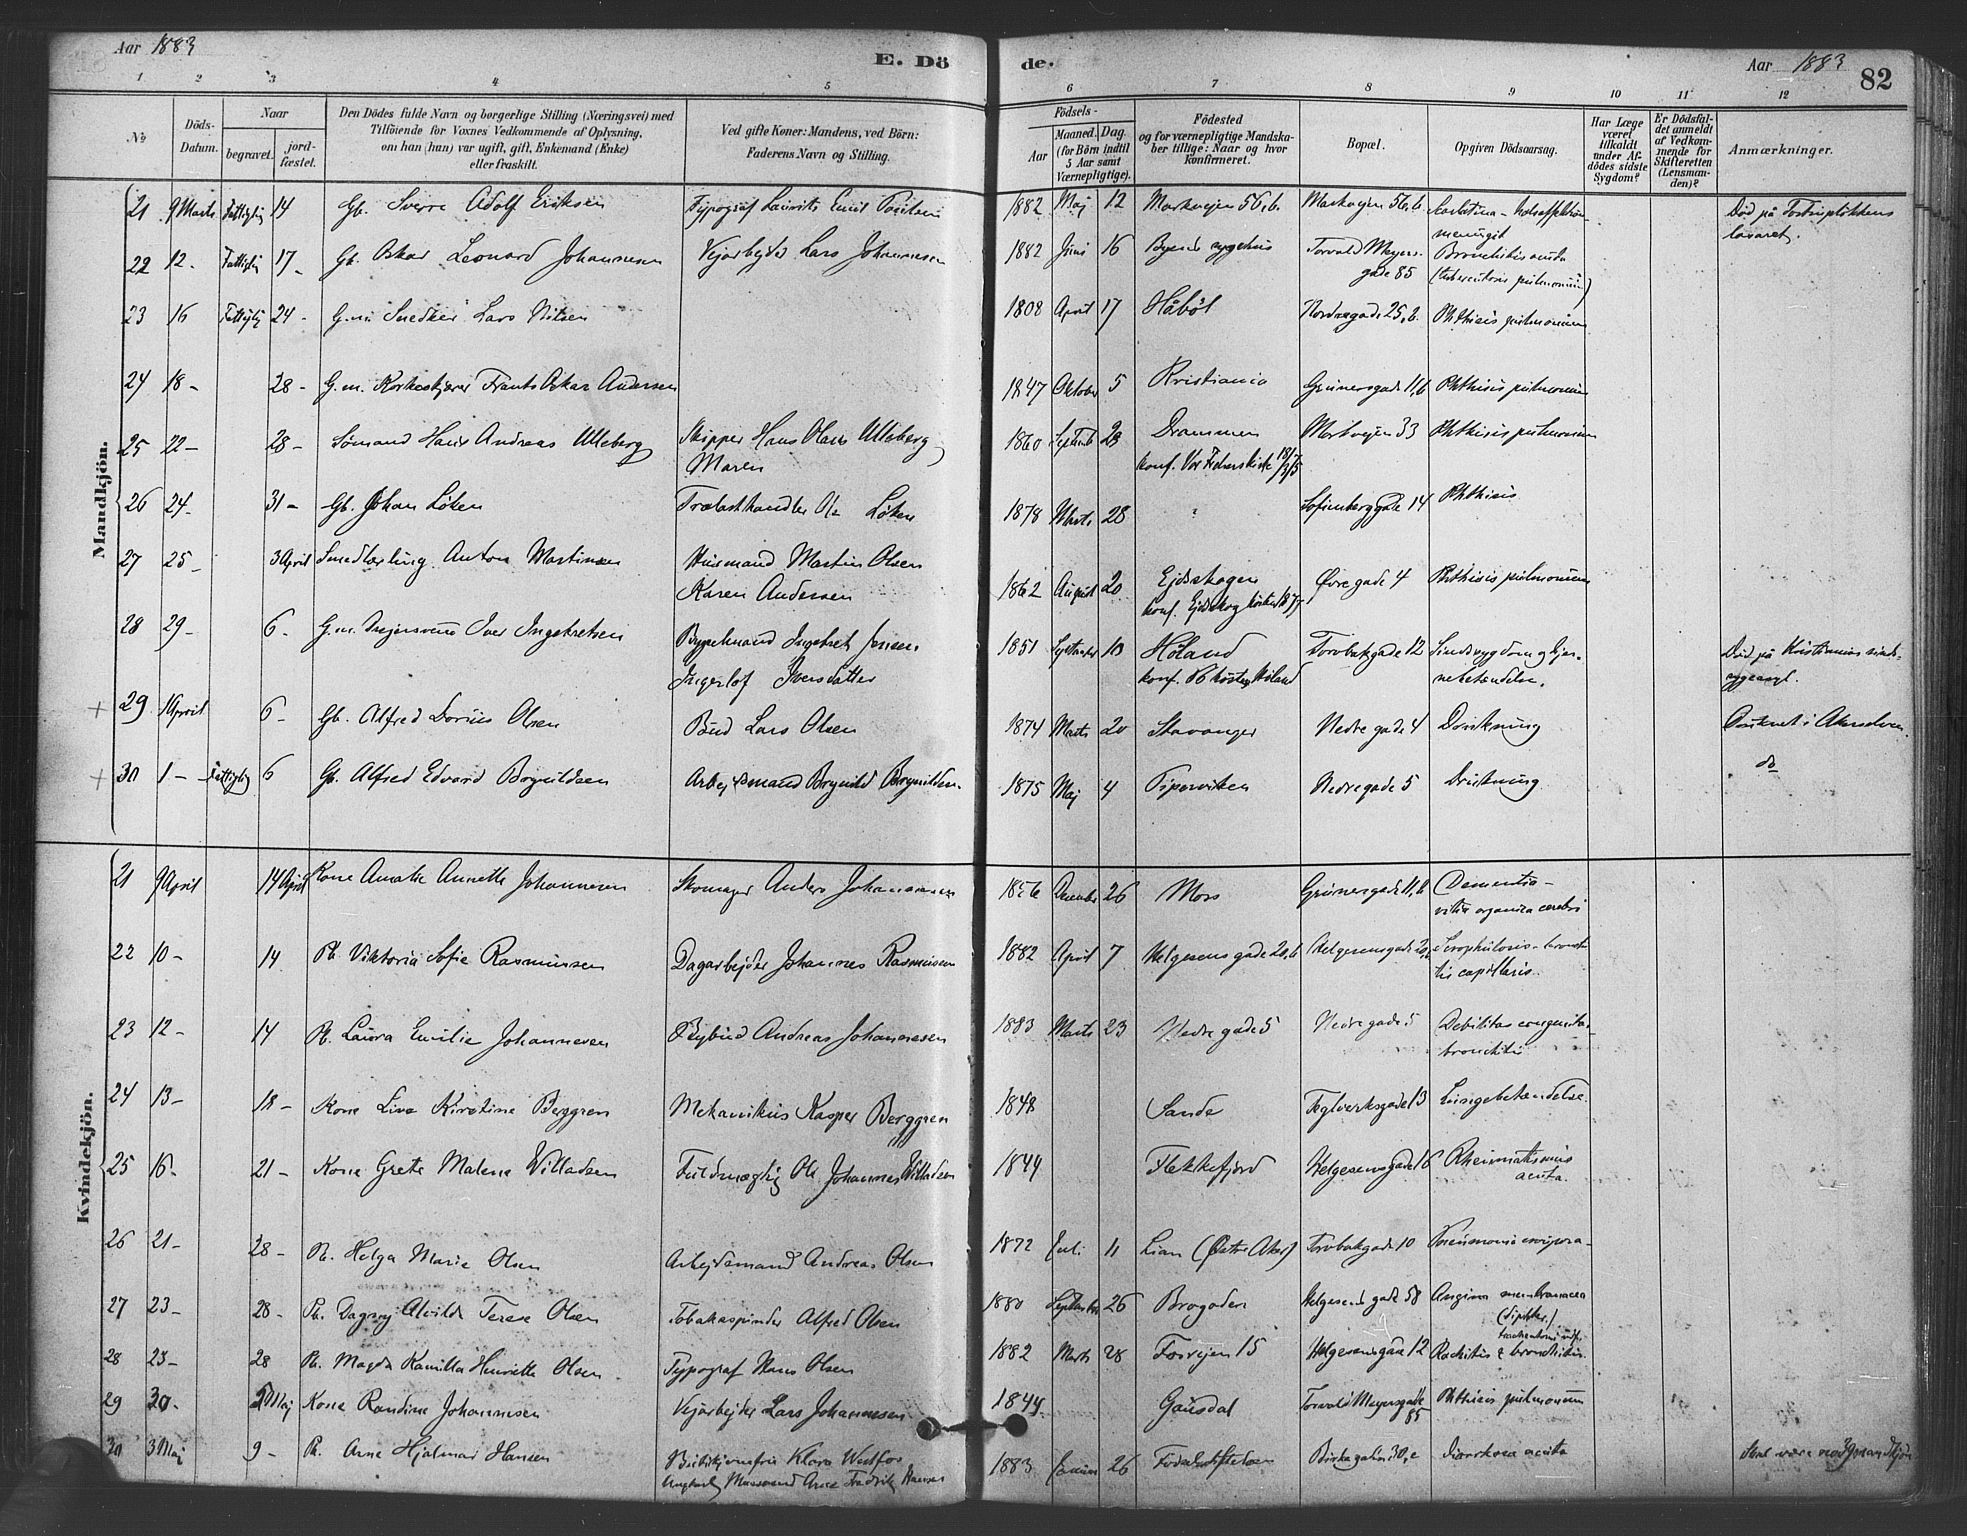 Aar 1883
E. Dö
de.
Aar 1883
82
1 2 3 4 5 6 7 8 9 10 11 12
No
Döds-
Datum.
Naar
begravet.
jord-
fæstet.
Den Dödes fulde Navn og borgerlige Stilling (Næringsvei) med
Tilföiende for Voxnes Vedkommende af Oplysning,
om han (hun) var ugift, gift, Enkemand (Enke)
eller fraskilt.
Ved gifte Koner: Mandens, ved Börn:
Faderens Navn og Stilling.
Födsels-
Aar
Maaned. Dag.
(for Börn indtil
5 Aar samt
Værnepligtige).
Födested
og for værnepligtige Mandska-
ber tillige: Naar og hvor
konfirmeret.
Bopæl.
Opgiven Dödsaarsag.
Har Læge
været
tilkaldt
under Af-
dödes sidste
Sygdom?
Er Dödsfal-
det anmeldt
af Vedkom-
mende for
Skifteretten
(Lensman-
den)?
Anmærkninger.
Mandkjön.
21 9 Marts Fattiglig 14 Gb. Sverre Adolf Eriksen Typograf Laurits Emil 1882 Maj 12 Markvejen 56, b. Markvejen 56, b. Scarlatina –
meningit Død på
lasaret.
22 12 - Fattiglig 17 - Gb. Oskar Leonard Johannesen Vejarbejder Lars Johannesen 1882 Juni 16 Byens sygehus Torvald Meyers-
gade 85 Bronchitis acuta
(tuberculosis pulmonum)
23 16 Fattiglig 24 - G.m. Snedker Lars Nilsen 1808 April 17 Håbøl Nordregade 25, b. Phthisis pulmonum
24 18 - 28 - G.m. Korkeskjærer Frants Oskar Andersen 1847 Oktober 5 Kristiania Grünersgade 11, b Phthisis pulmonum
25 22 - 28 - Sømand Hans Andreas Ulleberg Skipper Hans Olaus Ulleberg,
Maren 1860 Septemb 28 Drammen
konf. Vor Frelsers kirke Markvejen 33 Phthisis pulmonum
26 24. 31 - Gb. Johan Løken Trælasthandler Ole Løken 1878 Marts 28 Sofienberggade 14 Phthisis
27 25 - 3 April Smedlærling Anton Martinsen Husmand Martin Olsen
Karen Andersen 1862 August 20 Ejdskogen
konf. Ejdskog Øvregade 4 Phthisis pulmonum
28 29 - 6 - G.m. Drejersvend Iver Ingebretsen Ingebret Jensen
Ingerlof Iversdatter 1851 September 10 Høland
konf. Høland Torvbakgade 12 Sindssygdom og hjer-
nebetændelse. Død på Kristianias sinds-
sygeasyl.
+ 29 1 April 6 - Gb. Alfred Dorius Olsen Bud Lars Olsen 1874 Marts 20 Stavanger Nedregade 4 Drukning Druknet i Akerselven.
+ 30 1 - Fattiglig 6 Gb. Alfred Edvard Brynildsen Arbejdsmand Brynild Brynildsen. 1875 Maj 4 Piperviken Nedregade 5 Drukning. do
Kvindekjön.
21 9 April 14 April Kone Amalie Annette Johannesen Skomager Anders Johannesen 1856 December 26 Moss Grünersgade 11, b Dementia –
vitia organica cerebri
22 10 - 14 Pb. Viktoria Sofie Rasmussen Dagarbejder Johannes Rasmussen 1882 April 7 Helgesens gade 20, b Helgesensgade 20, b Scrophulosis – bronchi-
tis capillaris.
23 12 - 14 Pb. Laura Emilie Johannesen Bybud Andreas Johannesen 1883 Marts 23 Nedregade 5 Nedregade 5 Debilitas congenita –
bronchitis
24 13 - 18 - Kone Lina Kirstine Berggren Mekanikus Kasper Berggren 1848 Sande Teglverksgade 13 Lungebetændelse.
25 16 - 21 - Kone Grete Malene Willadsen Fuldmægtig Ole Johannes Willadsen 1844 Flekkefjord Helgesensgade 16 Rheumatismus
acuta.
26 21 - 28 - Pb. Helga Marie Olsen Arbejdsmand Andreas Olsen 1872 Juli 11 Lian (Østre Aker) Torvbakgade 10 Pneumonia crouposa -
27 23 - 28 - Pb. Dagny Alvilde Terese Olsen Tobakspinder Alfred Olsen 1880 September 26 Brogaden Helgesens gade 58 Angina membranacea
(diphther.)
28 25 - 28 Pb. Magda Kamilla Henriette Olsen Typograf Hans Olsen 1882 Marts 28 Fosvejen 15 Helgesensgade 12 Rachitis & bronchitis.
29 30 - 5 Maj Kone Randine Johannesen Vejarbejder Lars Johannesen 1844 Gausdal Torvald Meyersgade
85 Phthisis pulmonum
30 3 Maj 9 - Pb. Arne Hjalmar Hansen Klara Westfos
Ungkarl, Arne Fredrik Hansen 1883 Januar 26 Fødselsstiftelsen Birkegaden 30, e Diarrhoea acuta Skal være mandkjøn